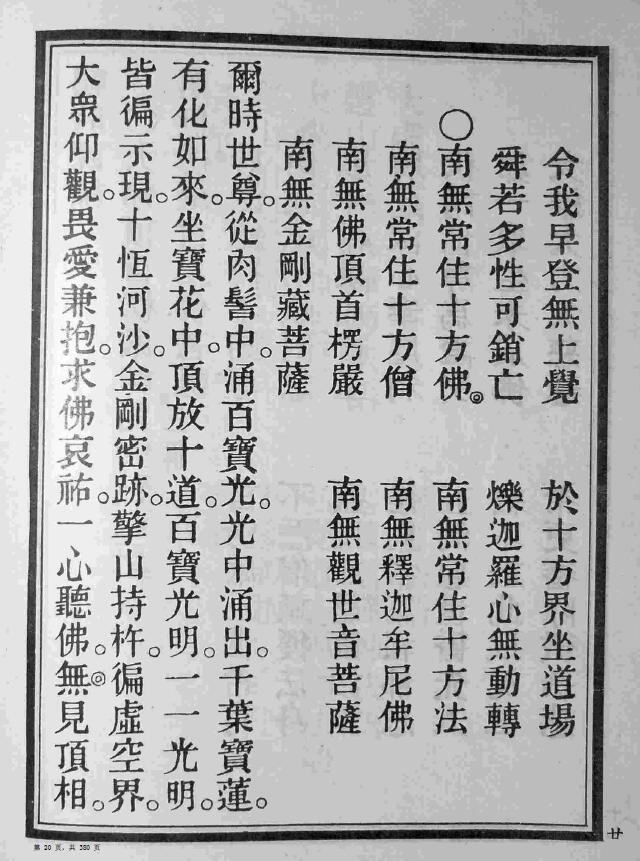 令我早登無上覺　於十方界坐道場
舜若多性可銷亡　爍迦羅心無動轉
○南無常住十方佛◎　南無常住十方法
南無常住十方僧　南無釋迦牟尼佛
南無佛頂首楞嚴　南無觀世音菩薩
南無金剛藏菩薩
爾時世尊。從肉髻中。涌百寶光。光中涌出。千葉寶蓮。
有化如來。坐寶花中。頂放十道。百寶光明。一一光明。
皆徧示現。十恆河沙。金剛密跡。擎山持杵。徧虛空界。
大眾仰觀。畏愛兼抱。求佛哀祐。一心聽佛。無◎見頂相。
廿
第 20 页，共 380 页